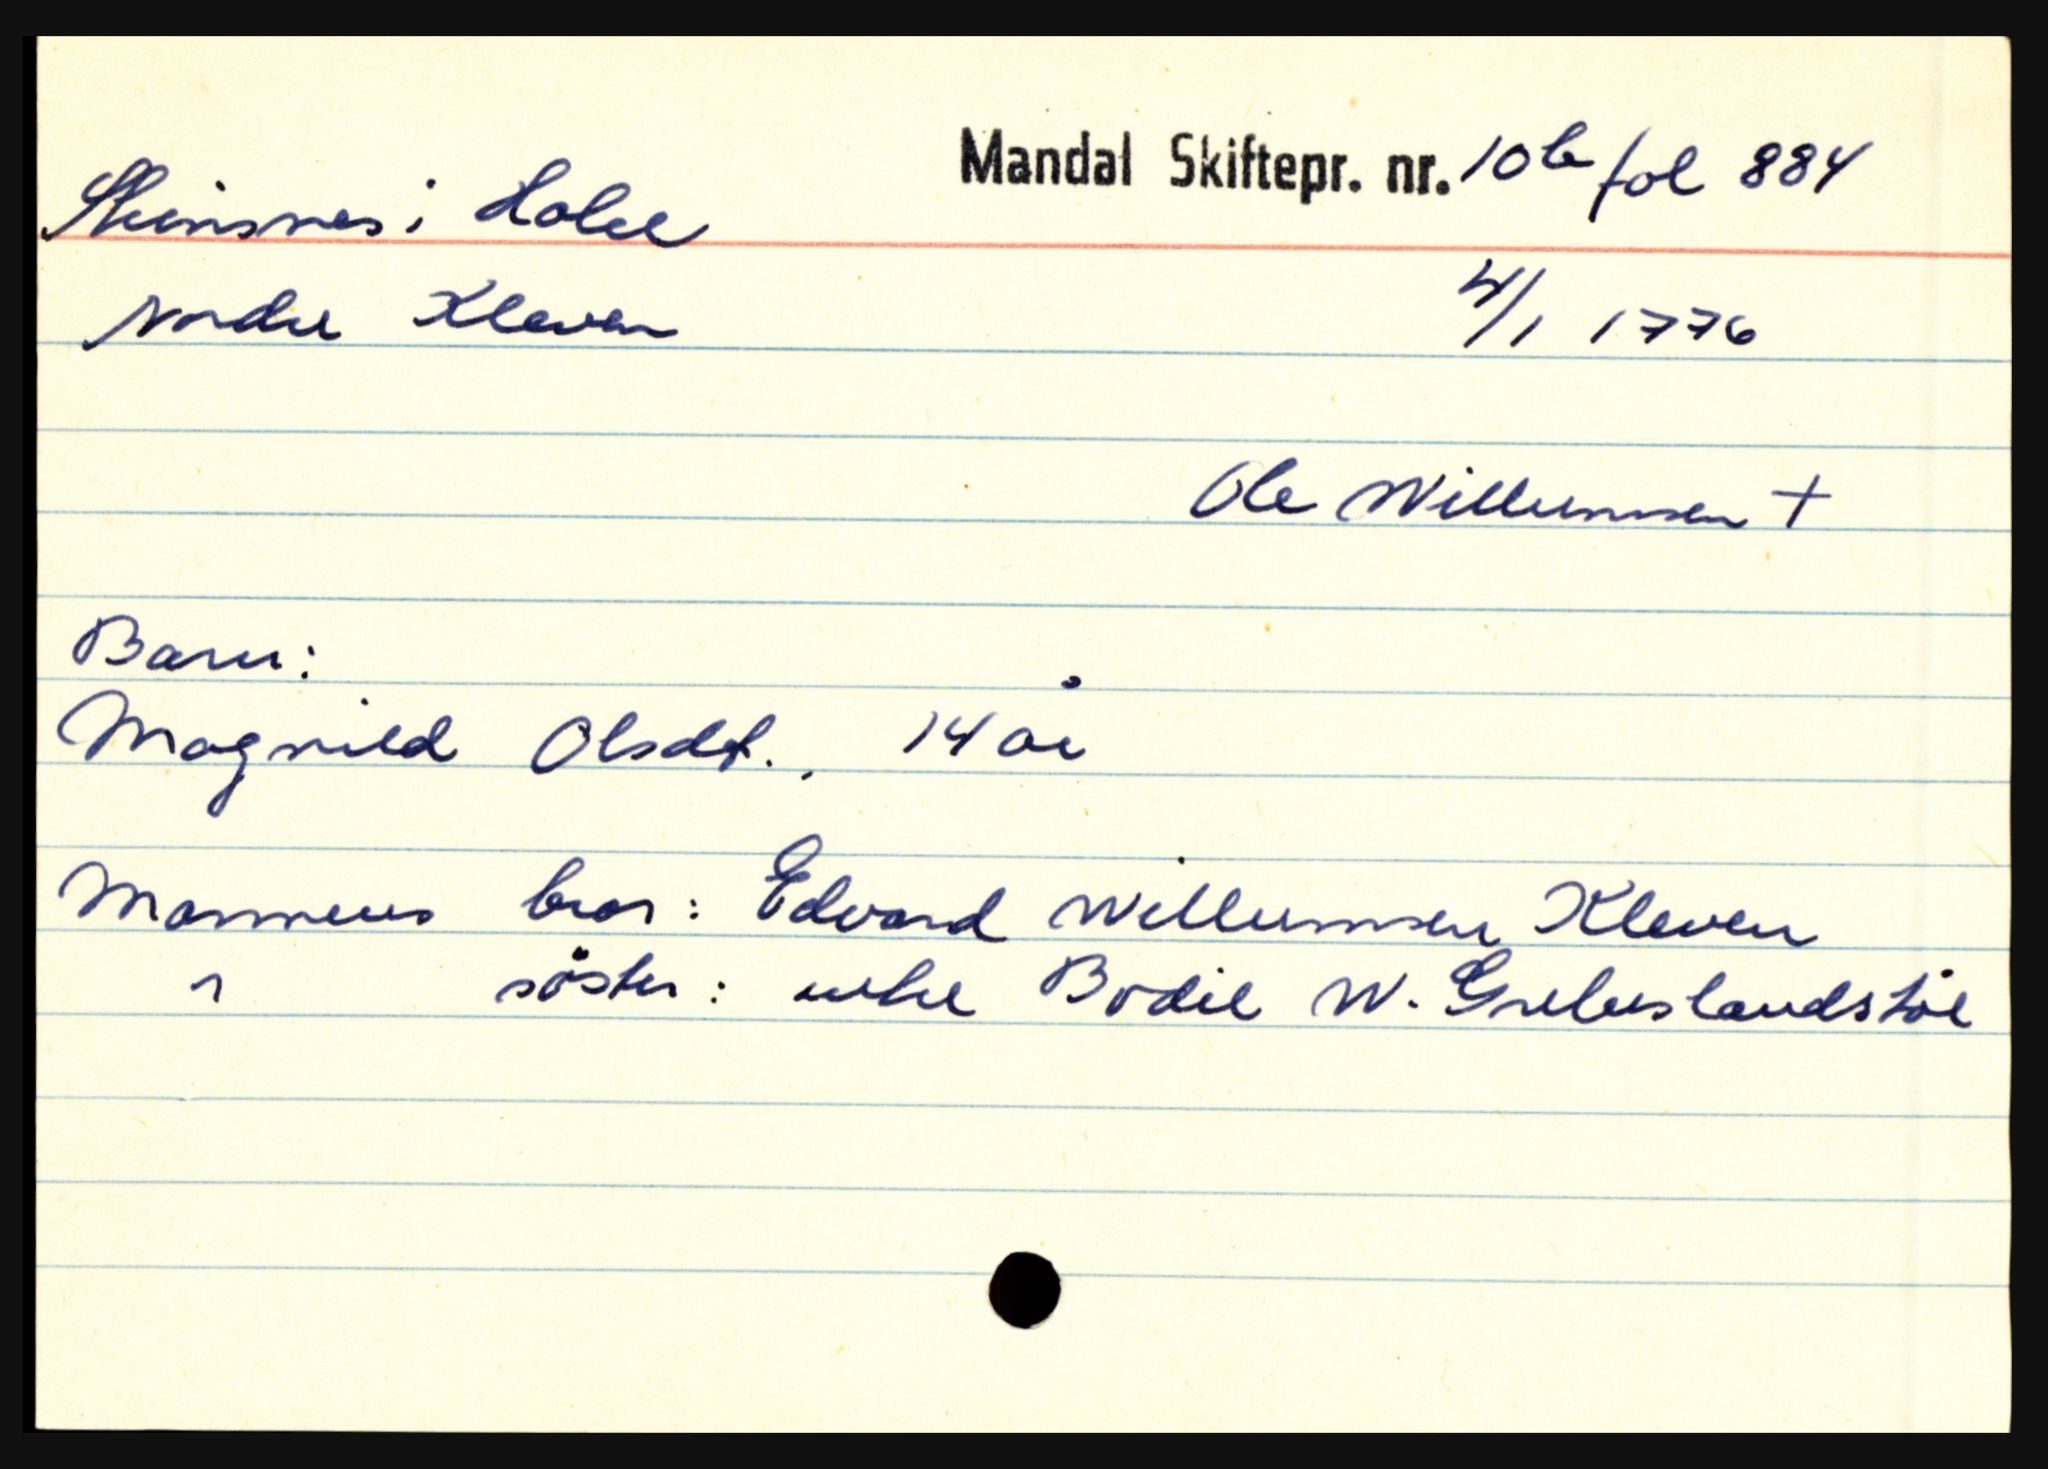 Mandal Skiftepr. nr. 10b fol 884
Steinsnes i Holme
Nordre Kleven 4/1 1776
Ole Willumsen +
Barn:
Magnild Olsdt., 14 år
Mannens bror: Edvard Willumsen Kleven
" söster: enke Bodil W.